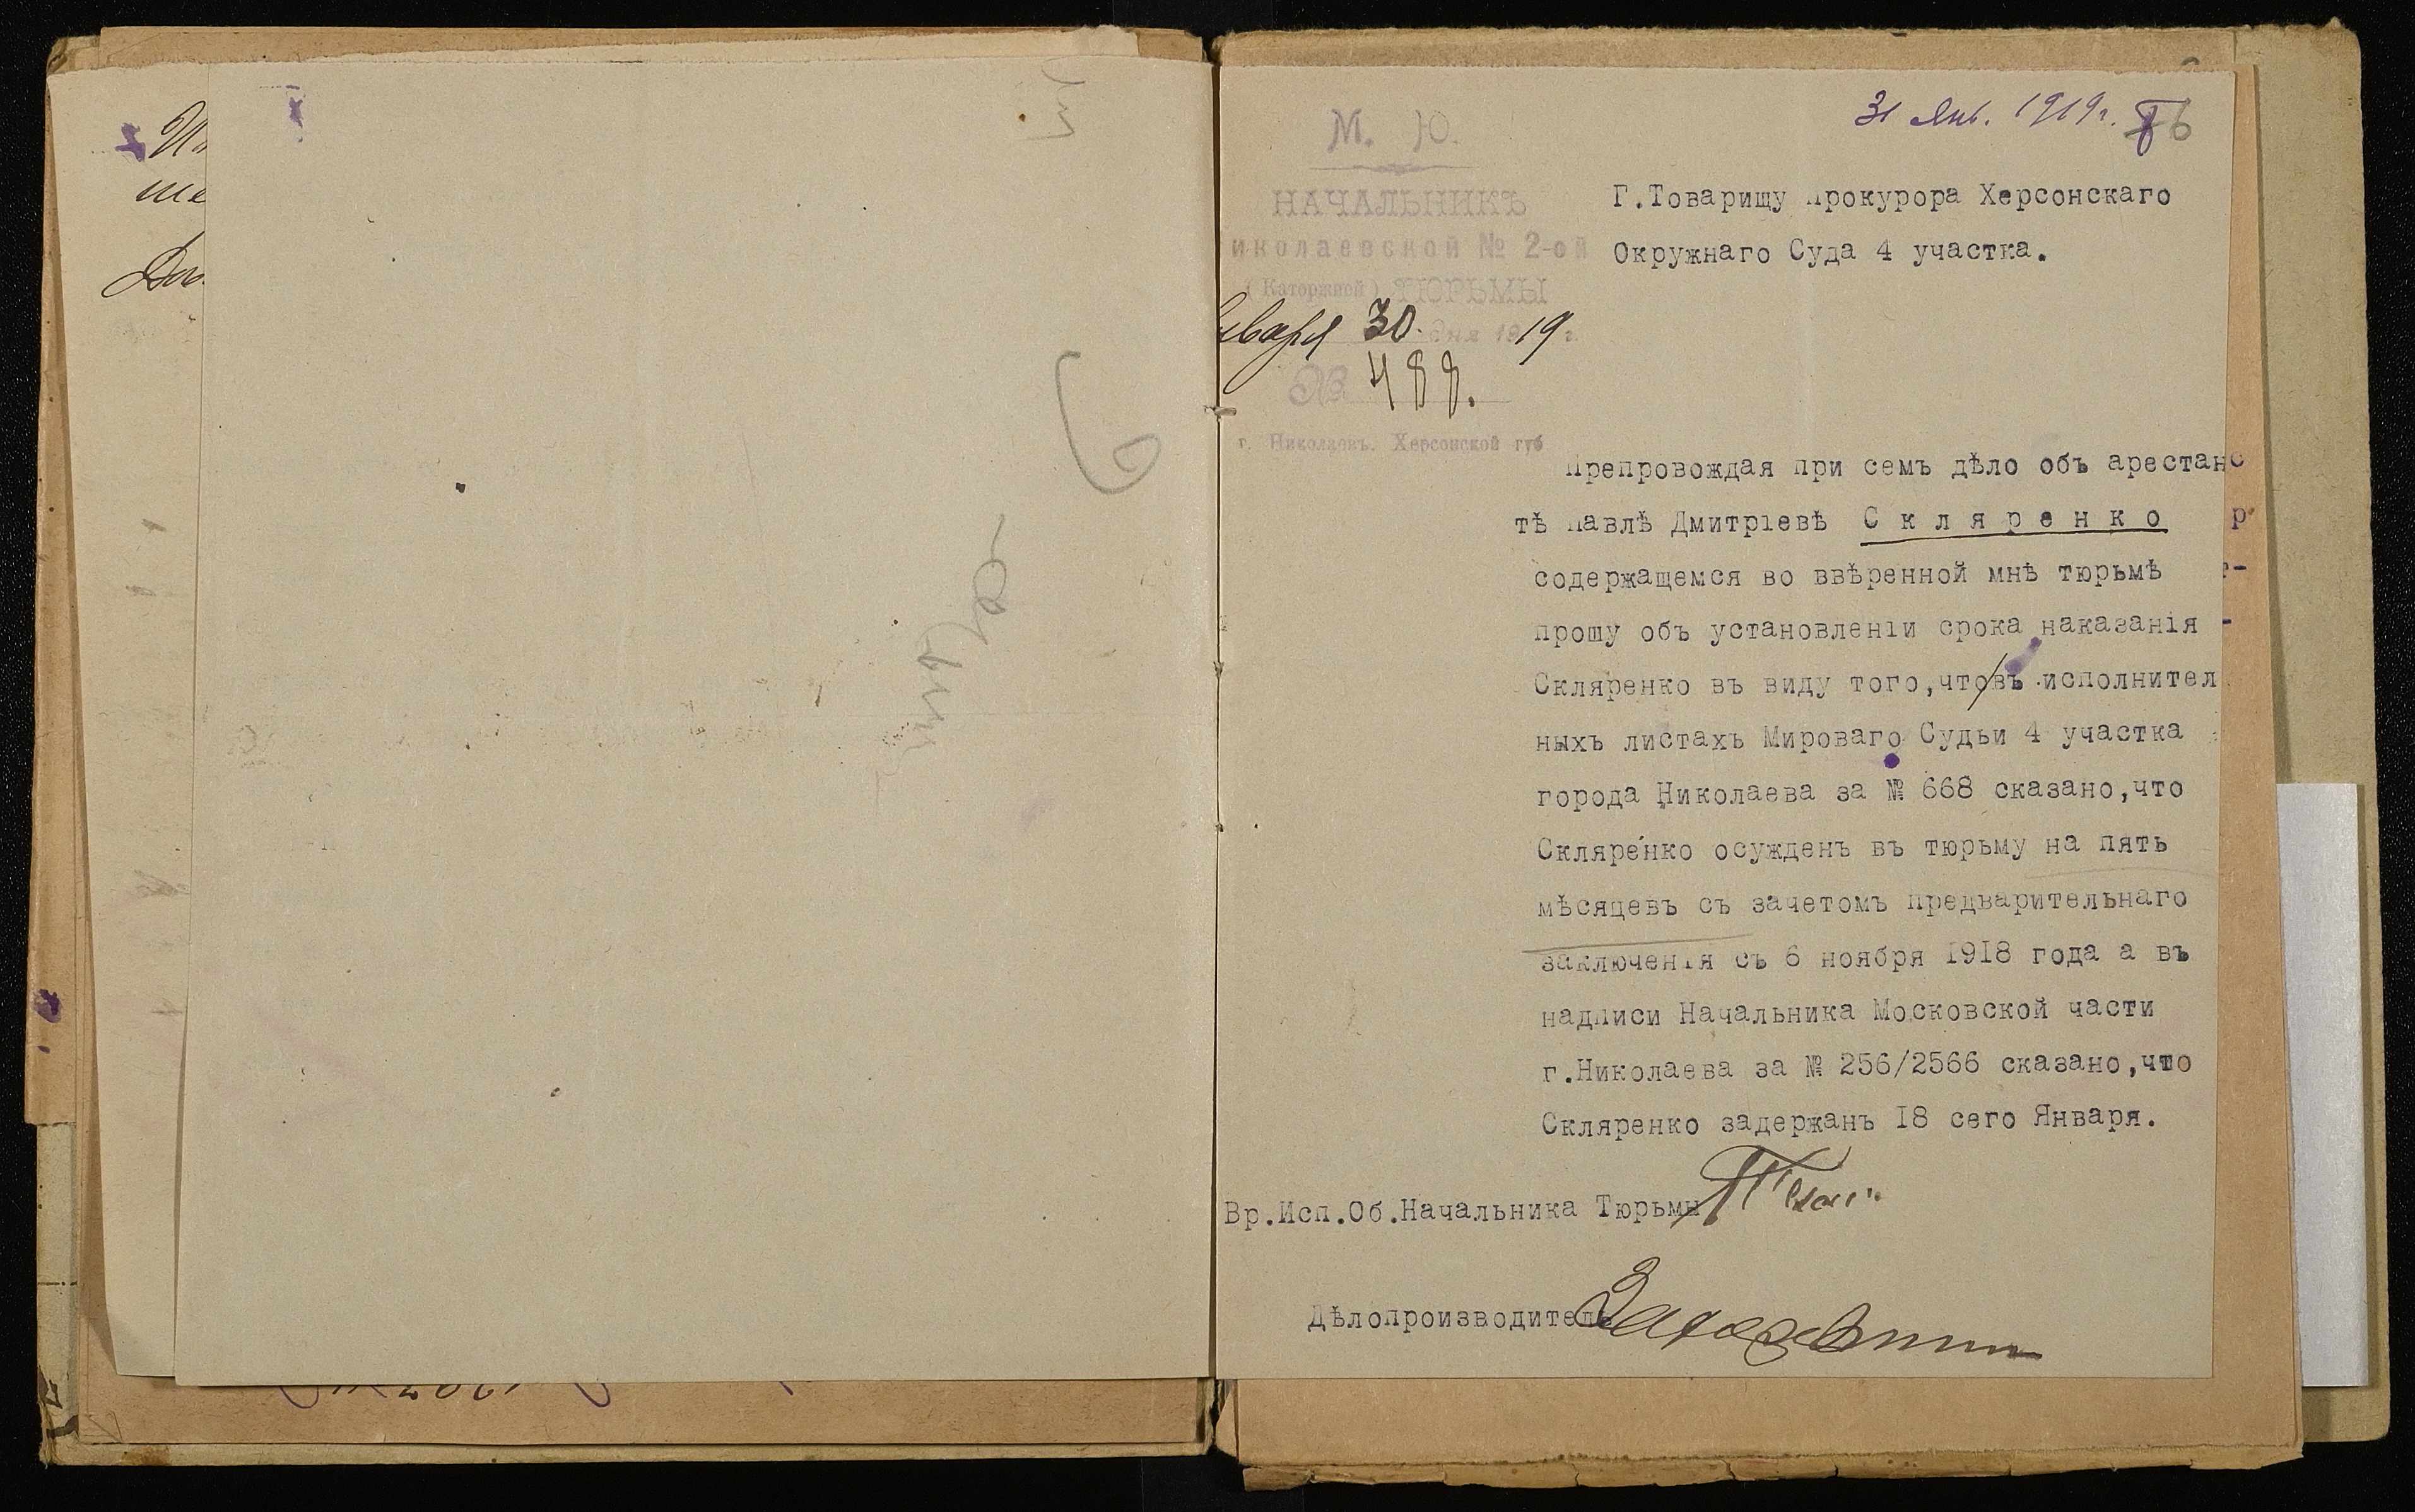 31 Янв. 1919 г. 6
М. Ю.
НАЧАЛЬНИКЪ
иколаевской № 2-ой
(Каторжной) ТЮРЬМЫ
нваря 30. дня 1919 г.
№ 488.
г. Николаевъ. Херсонской губ
Г.Товарищу Прокурора Херсонскаго
Окружнаго Суда 4 участка.
Препровождая при семъ дѣло объ арестан
тѣ Павлѣ Дмитріевѣ Скляренко
содержащемся во ввѣренной мнѣ тюрьмѣ
прошу объ установленіи срока наказанія
Скляренко въ виду того,что/въ исполнител
ныхъ листахъ Мироваго Судьи 4 участка
города Николаева за № 668 сказано,что
Скляренко осужденъ въ тюрьму на пять
мѣсяцевъ съ зачетомъ предварительнаго
заключенія съ 6 ноября I9I8 года а въ
надписи Начальника Московской части
г.Николаева за № 256/2566 сказано,что
Скляренко задержанъ I8 сего Января.
Вр.Исп.Об.Начальника Тюрьмы
Дѣлопроизводитель